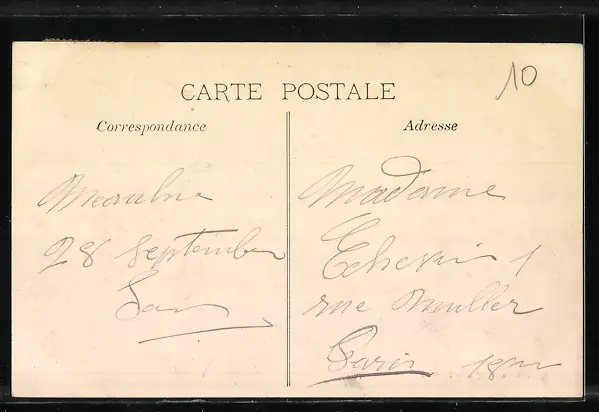 10
CARTE POSTALE
Correspondance
28 September
Adresse
Madame
Echevin 1
rue Muller
Paris 18m